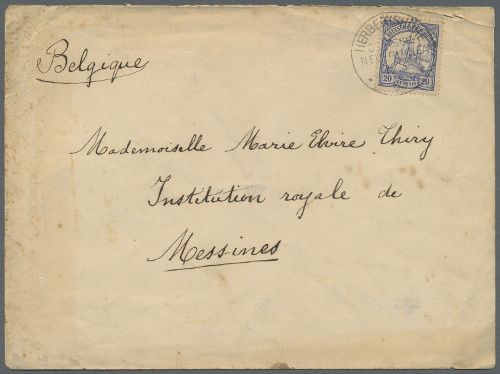 Belgique
HERBERTSHÖHE
20 20
Mademoiselle Marie Elvire Thiry
Institution royale de
Messines